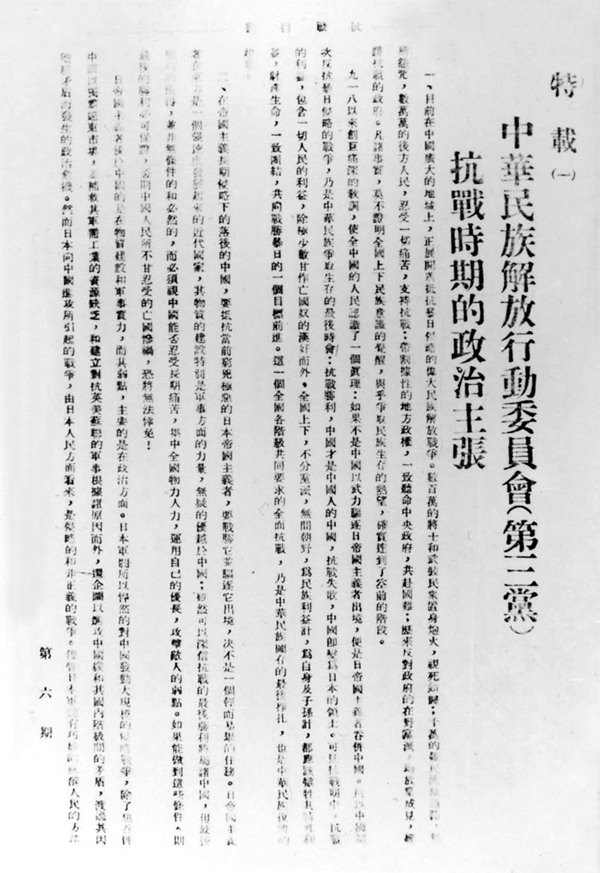 特載(一)
中華民族解放行動委員會(第三黨)
抗戰時期的政治主張
一、目前在中國廣大的地域上,正展開着抵抗暴日侵略的偉大民族解放戰爭。數百萬的將士和武裝民衆置身炮火,視死如歸;千萬的
死,數萬萬的後方人民,忍受一切痛苦,支持抗戰;帶割據性的地方政權,一致聽命中央政府,共赴國難;歷來反對政府的在野黨派,成見,
抗戰的政府。凡諸事實,莫不證明全國上下民族意識的覺醒,與乎爭取民族生存的熱望,確實達到了空前的階段。
九一八以來創巨痛深的教訓,使全中國的人民認識了一個真理:如果不是中國以武力驅逐日帝國主義者出境,便是日帝國主義者吞併中國。
次反抗暴日侵略的戰爭,乃是中華民族爭取生存的最後時會;抗戰勝利,中國才是中國人的中國,抗戰失敗,中國即變爲日本的領土。抗戰
的利益,包含一切人民的利益,除極少數甘作亡國奴的漢奸而外,全國上下,不分黨派,無間朝野,爲民族利益計,爲自身及子孫計,都應該犧牲其
財產生命,一致團結,共向戰勝暴日的一個目標前進。這一個全國各階級共同要求的全面抗戰,乃是中華民族圖存的最後掙扎,也是中華民族復興的
二、在帝國主義長期侵略下的落後的中國,要抵抗當前窮兇極惡的日本帝國主義者,要戰勝它並驅逐它出境,決不是一個輕而易舉的任務。日帝國主義
是一個強近代國家,其物質的建設特別是軍事方面的力量,無疑的優越於中國;縱然可以深信抗戰的最後勝利將屬諸中國,但最後
並非無條件的和必然的,而必須視中國能否忍受長期痛苦,集中全國物力人力,運用自己的優長,攻擊敵人的弱點。如果能做到這些條件,則
最後的勝利必可保證,否則中國人民所不甘忍受的亡國慘禍,恐將無法倖免!
日帝國主義者優於中國的是在物質建設和軍事實力,而其弱點,主要的是在政治方面。日本軍閥所以悍然的對中國發動大規模的侵略戰爭,除了想吞併
中國以獨霸遠東市場,補救其軍需工業的資源缺乏,和建立對抗英美蘇聯的軍事根據諸原因而外,還企圖以進攻中國緩和其國內階級間的矛盾,渡過其因
矛盾而發生的政治危機。然而日本向中國進攻所引起的戰爭,由日本人民方面看來,是侵略的和非正義的戰爭。儘管日本軍閥有人民的方法
第六期